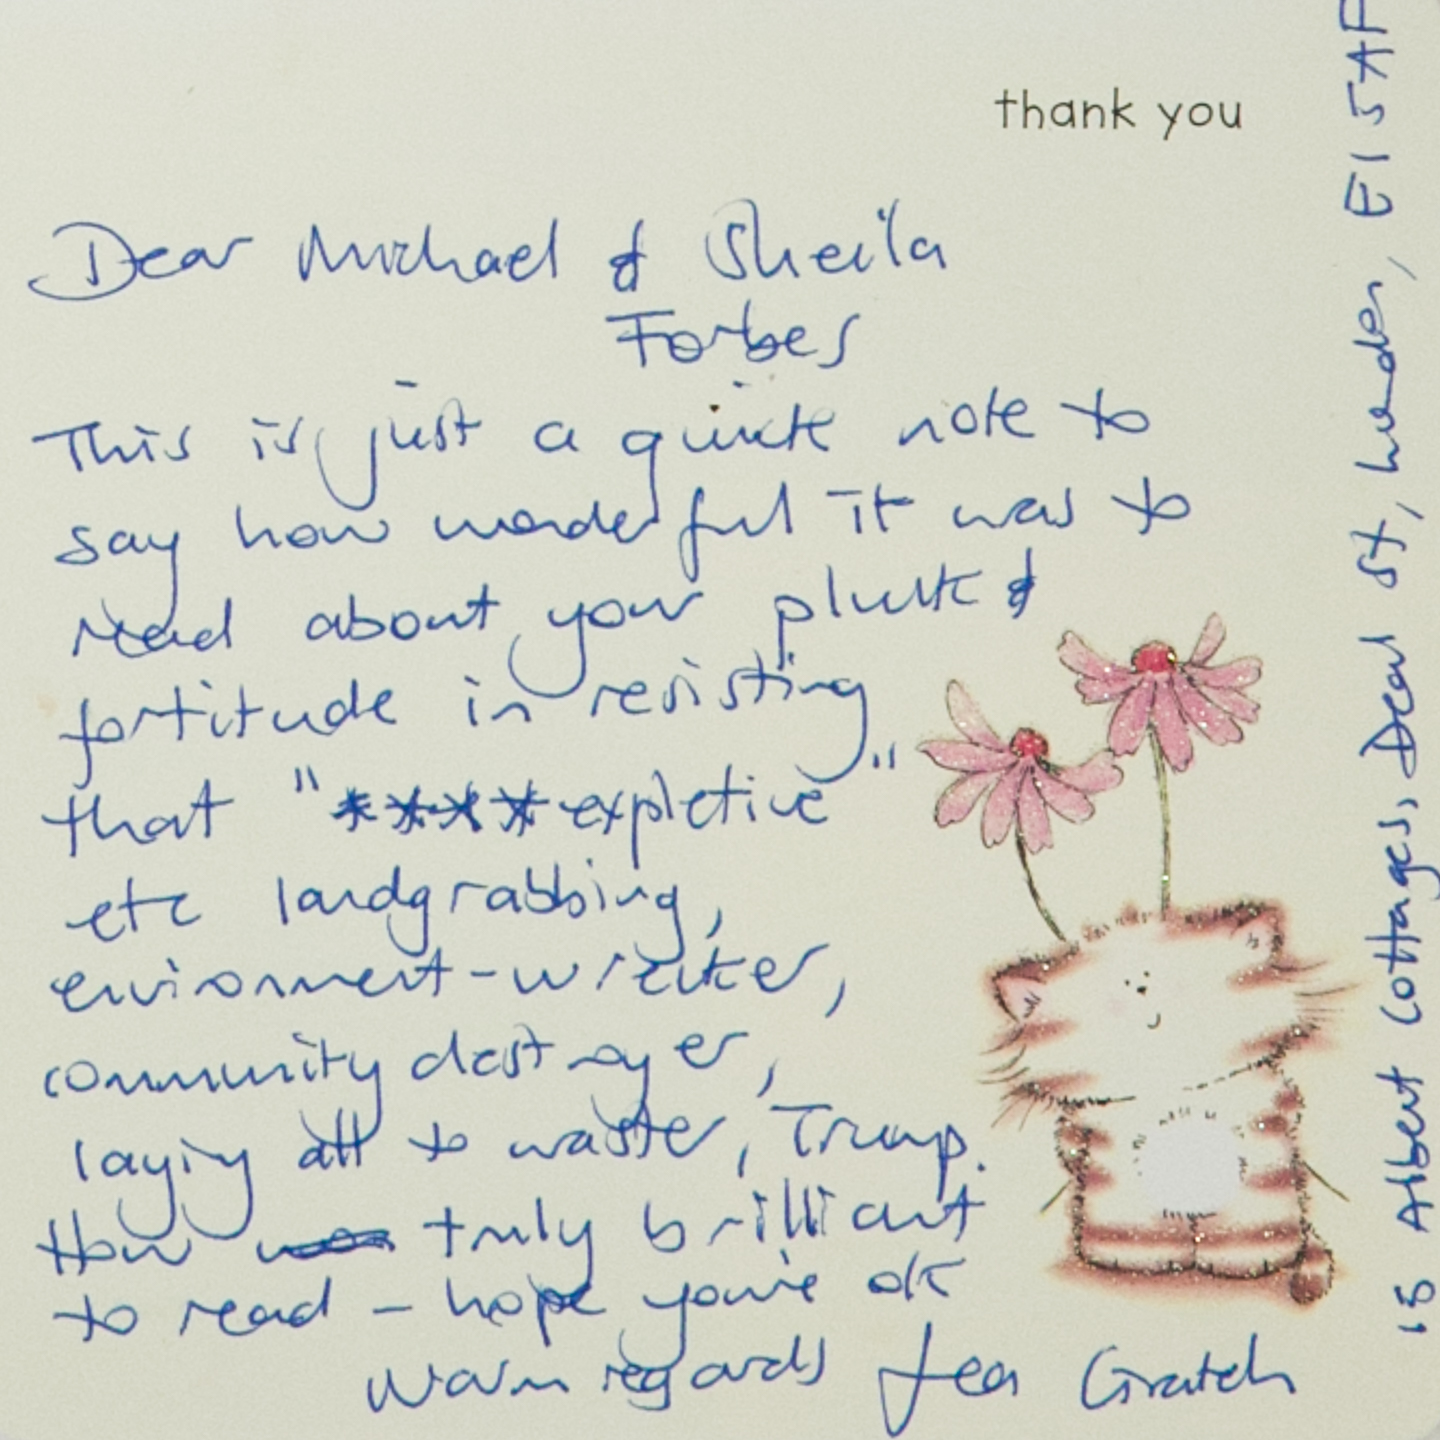 thank you
Dear Michael & Sheila
Forbes
This is just a quick note to
say how wonderful it was to
read about your pluck &
fortitude in resisting
that "**** expletive"
etc landgrabbing,
environment-wrecker,
community destroyer,
laying all to waster, Trump.
How truly brilliant
to read - hope you're ok
Warm regards Lea Gratch
15 Albert Cottages, Deal St, London, E1 5AF